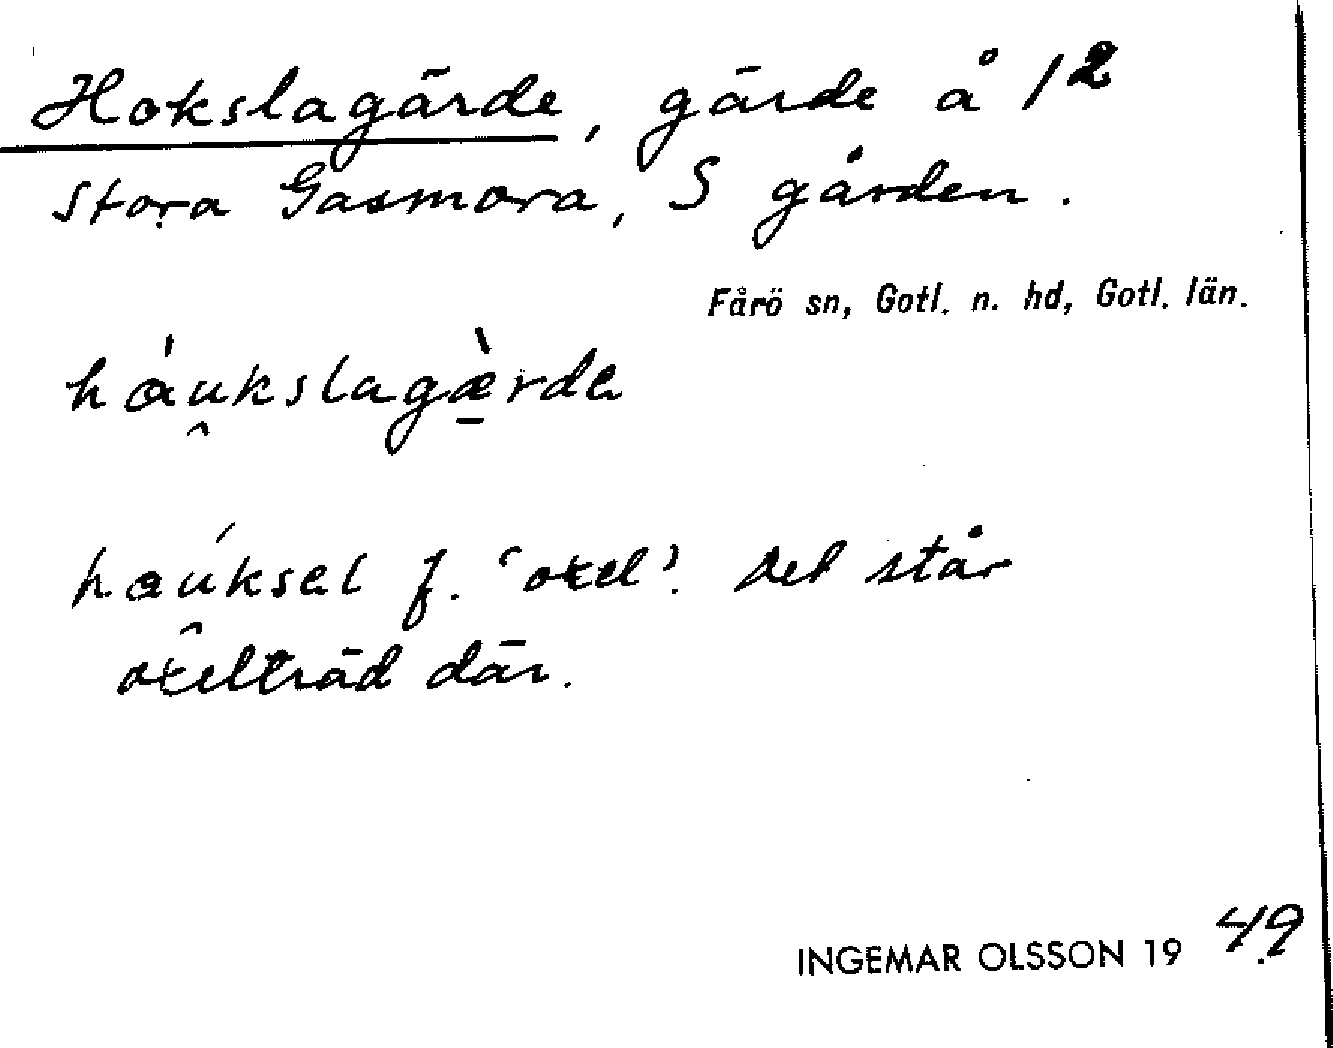 Hokslagärde, gärde å 1²
Stora Gasmora, S gården.
Fårö sn, Gotl. n. hd, Gotl. län.
háu̯kslagæ̱̀rda
haú̯ksal f. ‘oxel’. Det står
oxelträd där.
INGEMAR OLSSON 19 49.